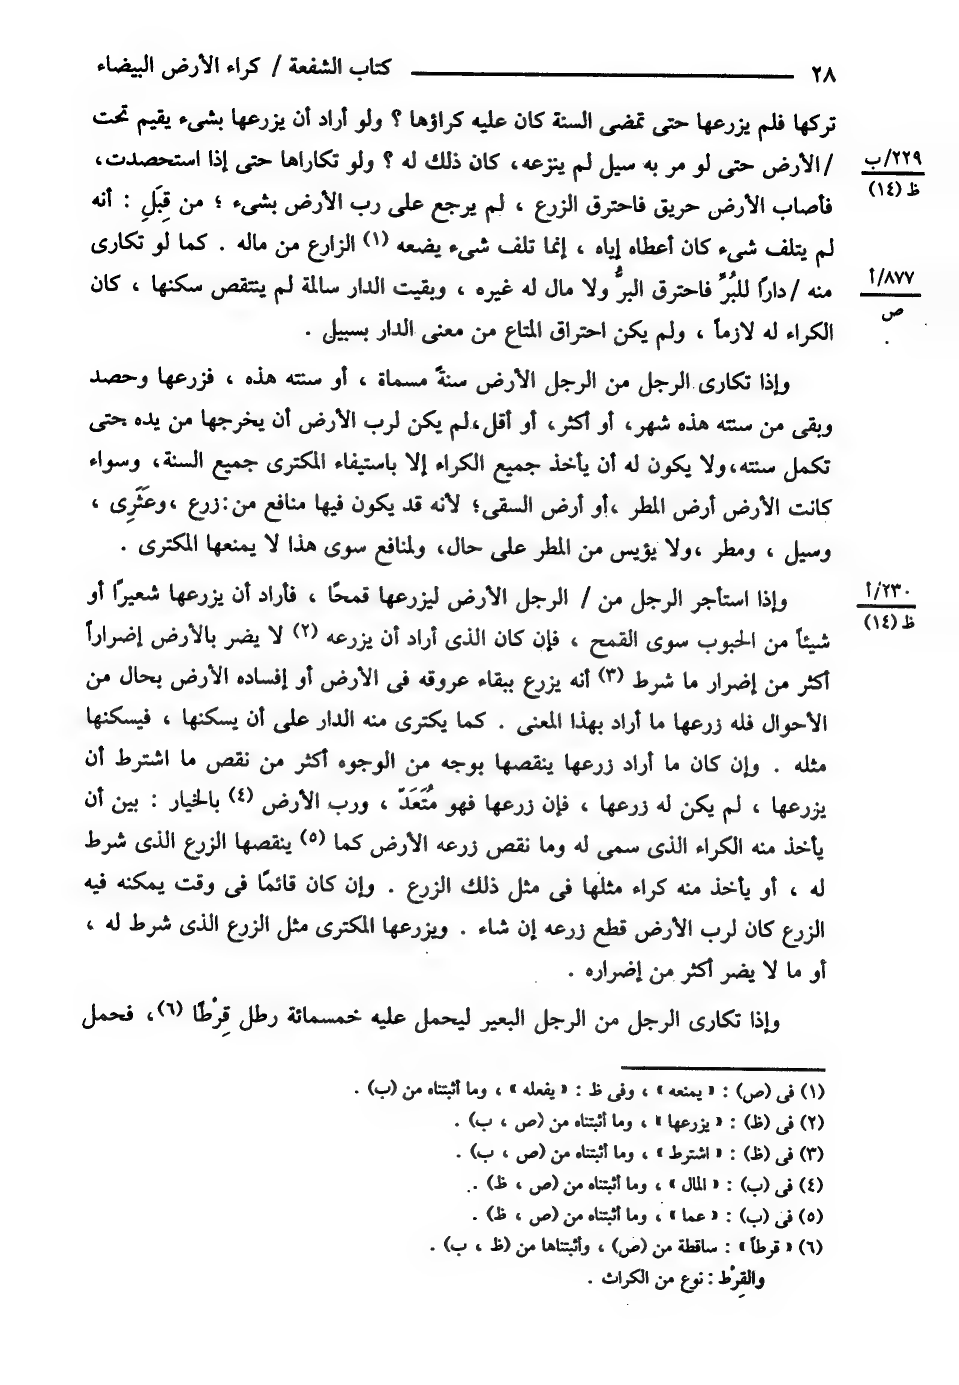 ٢٨ ــــــــــــــــــــ كتاب الشفعة / كراء الأرض البيضاء
تركها فلم يزرعها حتى تمضى السنة كان عليه كراؤها ؟ ولو أراد أن يزرعها بشىء يقيم تحت
٢٢٩/ب
ظ (١٤)
/الأرض حتى لو مر به سيل لم ينزعه، كان ذلك له ؟ ولو تكاراها حتى إذا استحصدت،
فأصاب الأرض حريق فاحترق الزرع ، لم يرجع على رب الأرض بشىء ؛ من قِبَلِ : أنه
لم يتلف شىء كان أعطاه إياه ، إنما تلف شىء يضعه (١) الزارع من ماله . كما لو تكارى
٨٧٧/أ
ص
منه /دارًا للبُرِّ فاحترق البرُّ ولا مال له غيره ، وبقيت الدار سالمة لم ينتقص سكنها ، كان
الكراء له لازماً ، ولم يكن احتراق المتاع من معنى الدار بسبيل .
وإذا تكارى الرجل من الرجل الأرض سنةً مسماة ، أو سنته هذه ، فزرعها وحصد
وبقى من سنته هذه شهر، أو أكثر، أو أقل،لم يكن لرب الأرض أن يخرجها من يده حتى
تكمل سنته،ولا يكون له أن يأخذ جميع الكراء إلا باستيفاء المكترى جميع السنة، وسواء
كانت الأرض أرض المطر ،أو أرض السقى؛ لأنه قد يكون فيها منافع من:زرع ،وعَثَرِى ،
وسيل ، ومطر ،ولا يؤيس من المطر على حال، ولمنافع سوى هذا لا يمنعها المكترى .
٢٣٠/أ
ظ (١٤)
وإذا استأجر الرجل من / الرجل الأرض ليزرعها قمحًا ، فأراد أن يزرعها شعيرًا أو
شيئاً من الحبوب سوى القمح ، فإن كان الذى أراد أن يزرعه (٢) لا يضر بالأرض إضراراً
أكثر من إضرار ما شرط (٣) أنه يزرع ببقاء عروقه فى الأرض أو إفساده الأرض بحال من
الأحوال فله زرعها ما أراد بهذا المعنى . كما يكترى منه الدار على أن يسكنها ، فيسكنها
مثله . وإن كان ما أراد زرعها ينقصها بوجه من الوجوه أكثر من نقص ما اشترط أن
يزرعها ، لم يكن له زرعها ، فإن زرعها فهو مُتَعَدّ ، ورب الأرض (٤) بالخيار : بين أن
يأخذ منه الكراء الذى سمى له وما نقص زرعه الأرض كما (٥) ينقصها الزرع الذى شرط
له ، أو يأخذ منه كراء مثلها فى مثل ذلك الزرع . وإن كان قائمًا فى وقت يمكنه فيه
الزرع كان لرب الأرض قطع زرعه إن شاء . ويزرعها المكترى مثل الزرع الذى شرط له ،
أو ما لا يضر أكثر من إضراره .
وإذا تكارى الرجل من الرجل البعير ليحمل عليه خمسمائة رطل قِرْطًا (٦)، فحمل
(١) فى (ص) : « يمنعه » ، وفى ظ : « يفعله » ، وما أثبتناه من (ب) .
(٢) فى (ظ) : « يزرعها » ، وما أثبتناه من (ص ، ب) .
(٣) فى (ظ) : « اشترط » ، وما أثبتناه من (ص ، ب) .
(٤) فى (ب) : « المال » ، وما أثبتناه من (ص ، ظ) .
(٥) فى (ب) : « عما » ، وما أثبتناه من (ص ، ظ) .
(٦) « قرطاً » : ساقطة من (ص) ، وأثبتناها من (ظ ، ب) .
والقِرْط : نوع من الكراث .